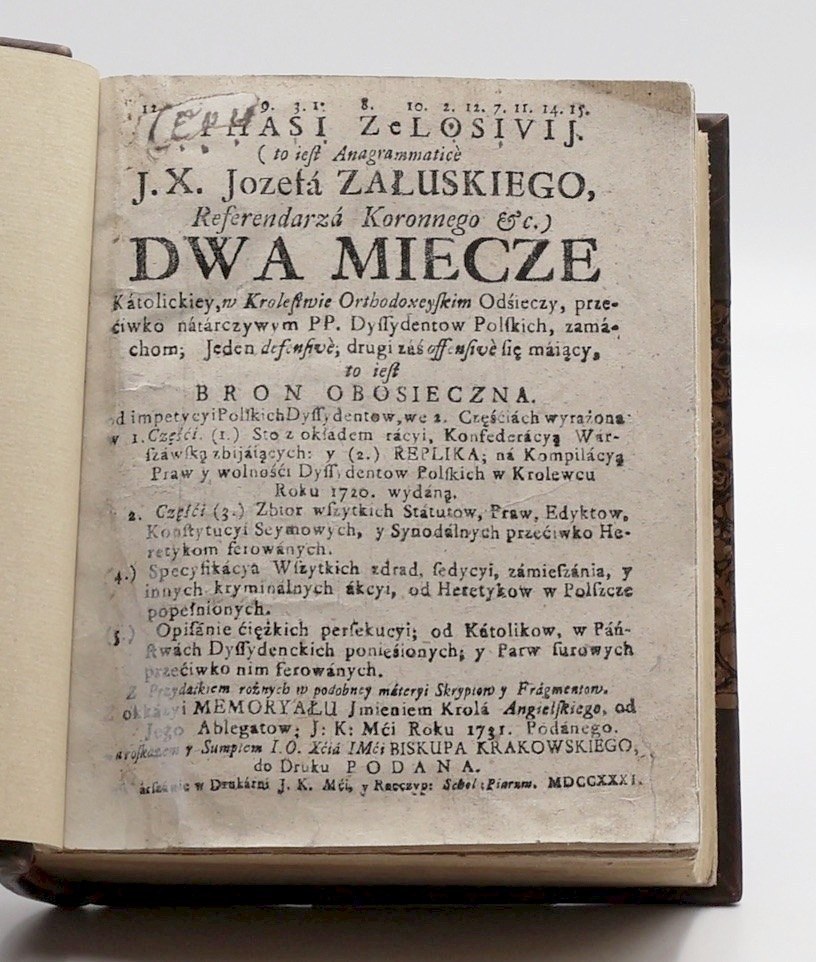 12. 9. 3. 1. 8. 10. 2. 12. 7. 11. 14. 15.
EPHASI ZeLOSIVIJ.
( to ieſt Anagrammaticè
J.X. Jozefá ZAŁUSKIEGO,
Referendarzá Koronnego &c.)
DWA MIECZE
Kátolickiey, w Kroleſtwie Orthodoxeyſkim Odśieczy, prze-
ćiwko nátárczywym PP. Dyſſydentow Polſkich, zamá-
chom; Jeden defenſivè; drugi záś offenſivè się máiący,
to ieſt
BRON OBOSIECZNA.
od impetycyi Polſkich Dyſſydentow, we 2. Częśćiách wyrażona:
w 1. Częśći. (1.) Sto z okładem rácyi, Konfederácyą War-
ſzáwſką zbijáiących: y (2.) REPLIKA; ná Kompilácyą
Praw y wolnośći Dyſſydentow Polſkich w Krolewcu
Roku 1720. wydáną.
2. Częśći (3.) Zbior wſzytkich Státutow, Praw, Edyktow,
Konſtytucyi Seymowych, y Synodálnych przećiwko He-
retykom ferowánych.
(4.) Specyfikácya Wſzytkich zdrad, ſedycyi, zámieſzánia, y
innych kryminálnych ákcyi, od Heretykow w Polſzcze
popełnionych.
(5.) Opiſánie ćiężkich perſekucyi; od Kátolikow, w Páń-
ſtwách Dyſſydenckich ponieśionych; y Parw ſurowych
przećiwko nim ferowánych.
Z Przydatkiem rożnych w podobney máteryi Skryptow y Frágmentow.
Z okkázyi MEMORYAŁU Jmieniem Krolá Angielſkiego, od
Jego Ablegatow; J: K: Mći Roku 1731. Podánego.
y Sumptem I.O. Xćiá IMći BISKUPA KRAKOWSKIEGO,
do Druku PODANA.
w Drukárni J. K. Mći, y Rzeczyp: Schol: Piarum. MDCCXXXI.